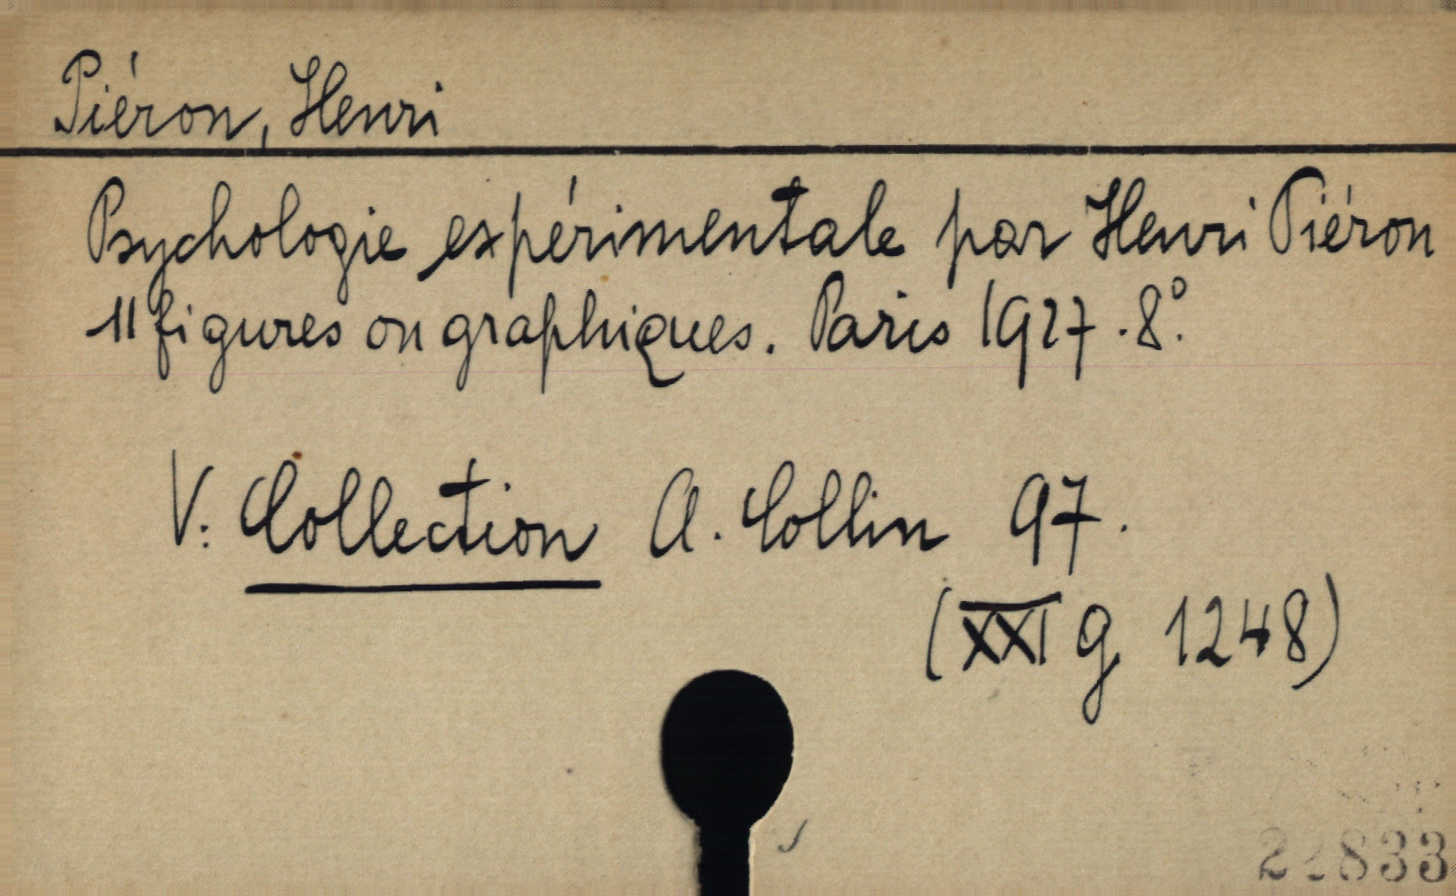 Piéron, Henri
Psychologie expérimentale par Henri Piéron
11 figures ou graphiques. Paris 1927.8º.
V: Collection A. Collin 97.
(XXI g 1248)